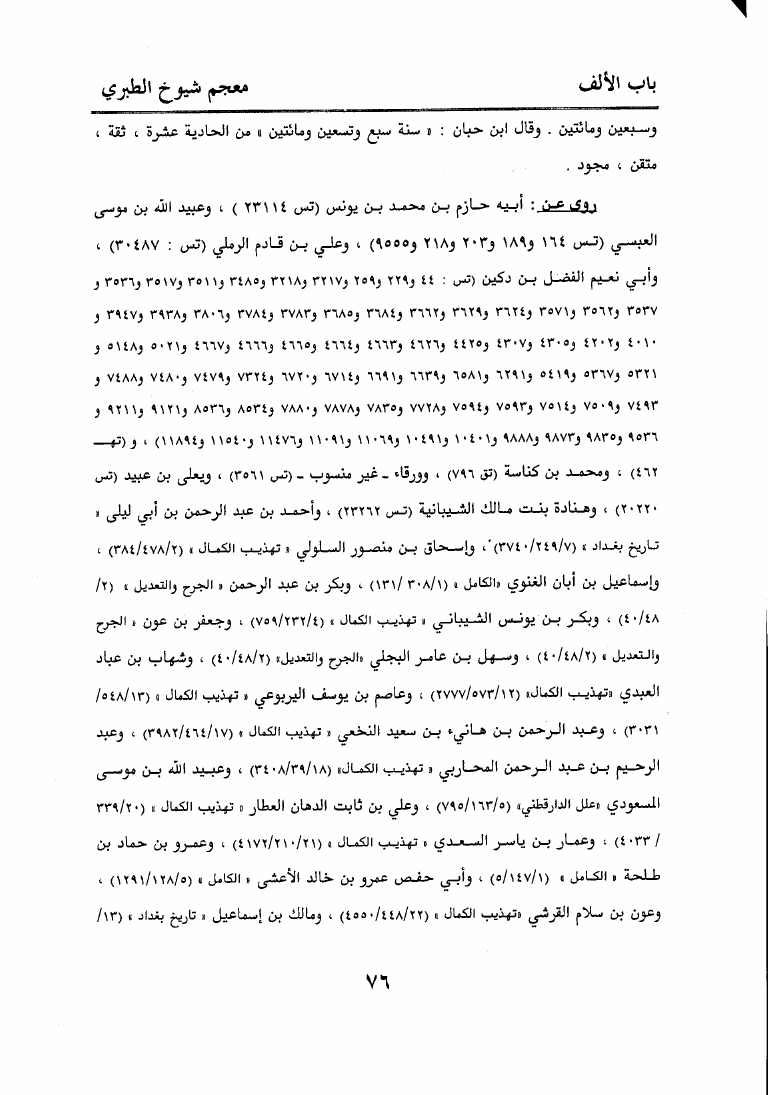 باب الألف
معجم شيوخ الطبري
وسبعين ومائتين . وقال ابن حبان : « سنة سبع وتسعين ومائتين » من الحادية عشرة ، ثقة ،
متقن ، مجود .
روى عن : أبيه حازم بن محمد بن يونس (تس ٢٣١١٤ ) ، وعبيد الله بن موسى
العبسي (تس ١٦٤ و١٨٩ و٢٠٣ و٢١٨ و٩٥٥٥) ، وعلي بن قادم الرملي (تس : ٣٠٤٨٧) ،
وأبي نعيم الفضل بن دكين (تس : ٤٤ و٢٢٩ و٢٥٩ و٣٢١٧ و٣٢١٨ و٣٤٨٥ و٣٥١١ و٣٥١٧ و٣٥٣٦ و
٣٥٣٧ و٣٥٦٢ و٣٥٧١ و٣٦٢٤ و٣٦٢٩ و٣٦٦٢ و٣٦٨٤ و٣٦٨٥ و٣٧٨٣ و٣٧٨٤ و٣٨٠٦ و٣٩٣٨ و٣٩٤٧ و
٤٠١٠ و٤٢٠٢ و٤٣٠٥ و٤٣٠٧ و٤٤٢٥ و٤٦٢٦ و٤٦٦٣ و٤٦٦٤ و٤٦٦٥ و٤٦٦٦ و٤٦٦٧ و٥٠٢١ و٥١٤٨ و
٥٣٢١ و٥٣٦٧ و٥٤١٩ و٦٢٩١ و٦٥٨١ و٦٦٣٩ و٦٦٩١ و٦٧١٤ و٦٧٢٠ و٧٣٢٤ و٧٤٧٩ و٧٤٨٠ و٧٤٨٨ و
٧٤٩٣ و٧٥٠٩ و٧٥١٤ و٧٥٩٣ و٧٥٩٤ و٧٧٢٨ و٧٨٣٥ و٧٨٧٨ و٧٨٨٠ و٨٥٣٤ و٨٥٣٦ و٩١٢١ و٩٢١١ و
٩٥٣٦ و٩٨٣٥ و٩٨٧٣ و٩٨٨٨ و١٠٤٠١ و١٠٤٩١ و١١٠٦٩ و١١٠٩١ و١١٤٧٦ و١١٥٤٠ و١١٨٩٤) ، و (تهـ
٤٦٢) ، ومحمد بن كناسة (تق ٧٩٦) ، وورقاء ـ غير منسوب ـ (تس ٣٥٦١) ، ويعلى بن عبيد (تس
٢٠٢٢٠) ، وهنادة بنت مالك الشيبانية (تس ٢٣٢٦٢) ، وأحمد بن عبد الرحمن بن أبي ليلى «
تاريخ بغداد » (٣٧٤٠/٢٤٩/٧) ، وإسحاق بن منصور السلولي « تهذيب الكمال » (٣٨٤/٤٧٨/٢) ،
وإسماعيل بن أبان الغنوي «الكامل » (١٣١/ ٣٠٨/١) ، وبكر بن عبد الرحمن « الجرح والتعديل » (٢/
٤٠/٤٨) ، وبكر بن يونس الشيباني « تهذيب الكمال » (٧٥٩/٢٣٢/٤) ، وجعفر بن عون « الجرح
والتعديل » (٤٠/٤٨/٢) ، وسهل بن عامر البجلي «الجرح والتعديل» (٤٠/٤٨/٢) ، وشهاب بن عباد
العبدي «تهذيب الكمال» (٢٧٧٧/٥٧٣/١٢) ، وعاصم بن يوسف اليربوعي « تهذيب الكمال » (٥٤٨/١٣/
٣٠٣١) ، وعبد الرحمن بن هانيء بن سعيد النخعي « تهذيب الكمال » (٣٩٨٢/٤٦٤/١٧) ، وعبد
الرحيم بن عبد الرحمن المحاربي « تهذيب الكمال» (٣٤٠٨/٣٩/١٨) ، وعبيد الله بن موسى
المسعودي «علل الدارقطني» (٧٩٥/١٦٣/٥) ، وعلي بن ثابت الدهان العطار « تهذيب الكمال » (٣٣٩/٢٠
/ ٤٠٣٣) ، وعمار بن ياسر السعدي « تهذيب الكمال » (٤١٧٢/٢١٠/٢١) ، وعمرو بن حماد بن
طلحة « الكامل » (٥/١٤٧/١) ، وأبي حفص عمرو بن خالد الأعشى « الكامل » (١٢٩١/١٢٨/٥) ،
وعون بن سلام القرشي «تهذيب الكمال » (٤٥٥٠/٤٤٨/٢٢) ، ومالك بن إسماعيل « تاريخ بغداد » (١٣/
٧٦